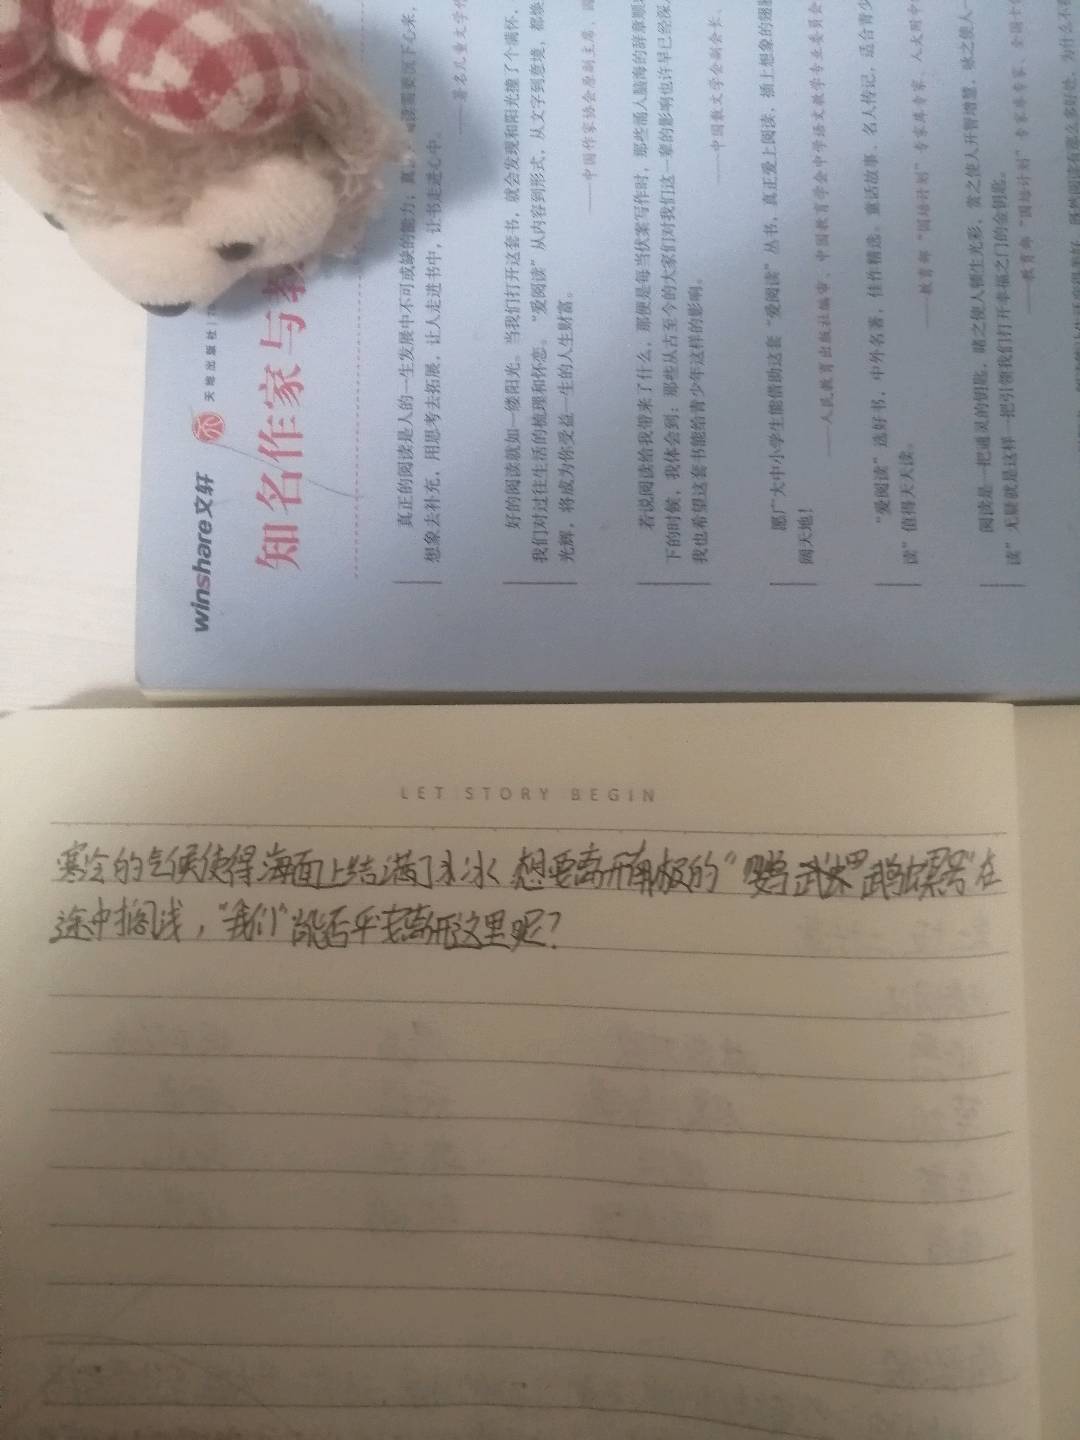 winshare文轩
天地出版社
知名作家与教
真正的阅读是人的一生发展中不可或缺的能力；真
阅读需要沉下心来，
想象去补充，用思考去拓展，让人走进书中，让书走进心中。
——著名儿童文学作
好的阅读就如一缕阳光。当我们打开这套书，就会发现和阳光撞了个满怀，
我们对过往生活的梳理和怀恋。“爱阅读”从内容到形式，从文字到意境，都焕
光辉，将成为你受益一生的人生财富。
——中国作家协会原副主席、
若说阅读给我带来了什么，那便是每当伏案写作时，那些涌入脑海的辞章顺
下的时候，我体会到：那些从古至今的大家们对我们这一辈的影响也许早已经深
我也希望这套书能给青少年这样的影响。
——中国散文学会副会长、
愿广大中小学生能借助这套“爱阅读”丛书，真正爱上阅读，插上想象的翅膀
阔天地！
——人民教育出版社编审、中国教育学会中学语文教学专业委员会
“爱阅读”选好书，中外名著，佳作精选。童话故事、名人传记，适合青少
读”值得天天读。
——教育部“国培计划”专家库专家、人大附中
阅读是一把通灵的钥匙，睹之使人顿生光彩，赏之使人开智增慧，咏之使人一
读”无疑就是这样一把引领我们打开幸福之门的金钥匙。
——教育部“国培计划”专家库专家、全国十
LET STORY BEGIN
寒冷的气候使得海面上结满了冰 想要离开南极的“鹦鹉螺号”在
途中搁浅，“我们”能否平安离开这里呢？